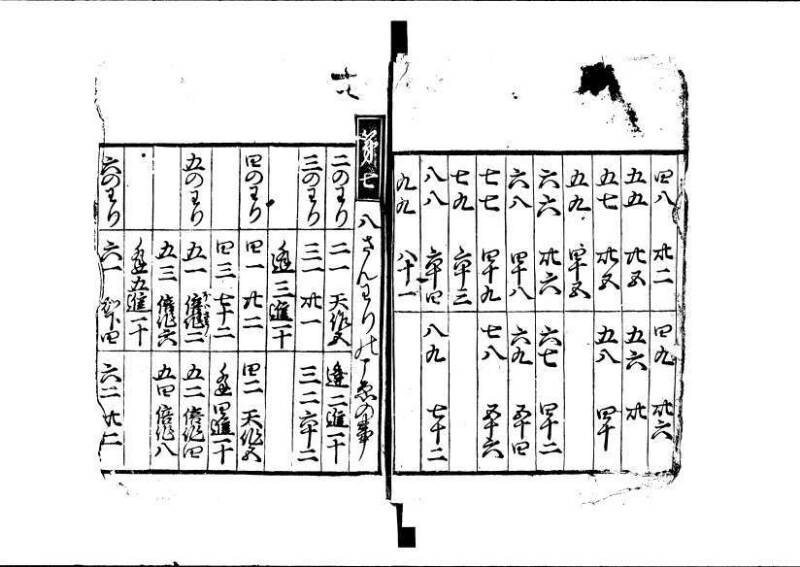 四八 卅二 四九 卅六
五五 廿五 五六 卅
五七 卅五 五八 四十
五九 四十五
六六 卅六 六七 四十二
六八 四十八 六九 五十四
七七 四十九 七八 五十六
七九 六十三
八八 六十四 八九 七十二
九九 八十一
第七 八さんわりのこゑの事
二のわり 二一 天作五 逢二進一十
三のわり 三一 卅一 三二 六十二
逢三進一十
四のわり 四一 廿二 四二 天作五
四三 七十二 逢四進一十
五のわり 五一 倍作二 五二 倍作四
五三 倍作六 五四 倍作八
逢五進一十
六のわり 六一 加下四 六二 卅二